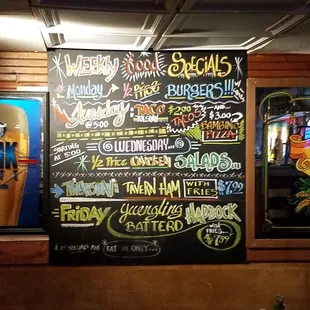 Weekly Food Specials
Monday 1/2 Price Burgers!!!
Tuesday Taco $2.00 and
@5:00 Tacos $3.00
Bambino
Pizza
Starting
at 5:00
Wednesday
1/2 Price Chicken Salads
Thursday: Tavern Ham with Fries $7.99
Friday Yuengling Haddock
Batterd with
Fries...
$7.99
Specials are Eat in Only...